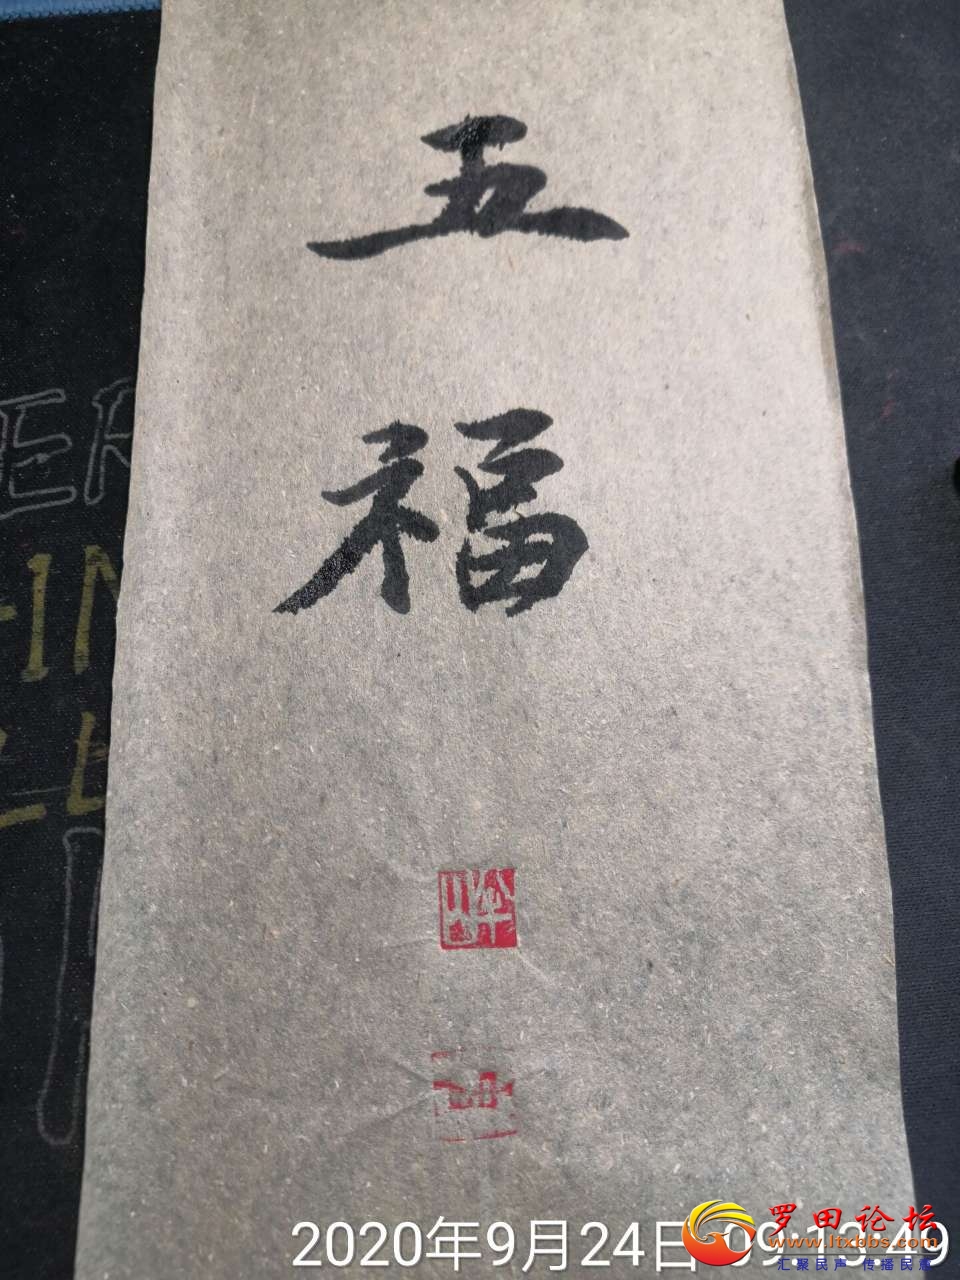 五
福
2020年9月24日 09:13:49
罗田论坛
www.ltxbbs.com
汇聚民声 传播民意